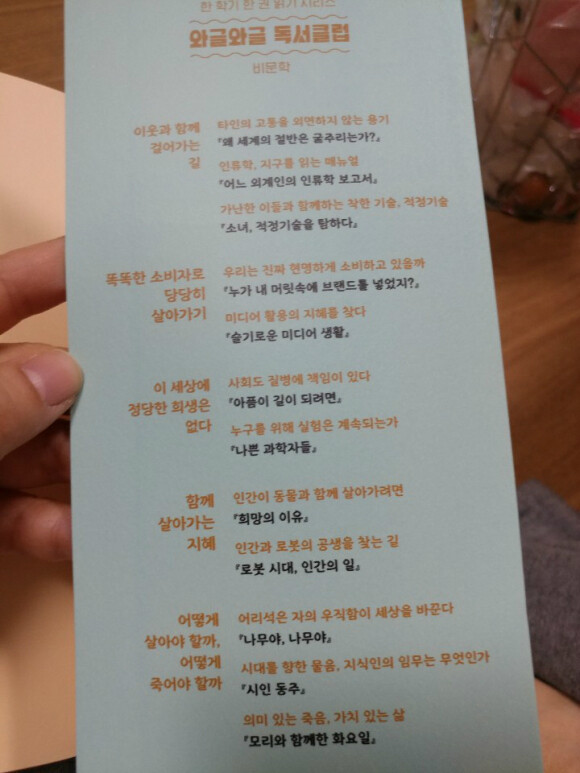 한 학기 한 권 읽기 시리즈
와글와글 독서클럽
비문학
이웃과 함께
걸어가는
길
타인의 고통을 외면하지 않는 용기
『왜 세계의 절반은 굶주리는가?』
인류학, 지구를 읽는 매뉴얼
『어느 외계인의 인류학 보고서』
가난한 이들과 함께하는 착한 기술, 적정기술
『소녀, 적정기술을 탐하다』
똑똑한 소비자로
당당히
살아가기
우리는 진짜 현명하게 소비하고 있을까
『누가 내 머릿속에 브랜드를 넣었지?』
미디어 활용의 지혜를 찾다
『슬기로운 미디어 생활』
이 세상에
정당한 희생은
없다
사회도 질병에 책임이 있다
『아픔이 길이 되려면』
누구를 위해 실험은 계속되는가
『나쁜 과학자들』
함께
살아가는
지혜
인간이 동물과 함께 살아가려면
『희망의 이유』
인간과 로봇의 공생을 찾는 길
『로봇 시대, 인간의 일』
어떻게
살아야 할까,
어떻게
죽어야 할까
어리석은 자의 우직함이 세상을 바꾼다
『나무야, 나무야』
시대를 향한 물음, 지식인의 임무는 무엇인가
『시인 동주』
의미 있는 죽음, 가치 있는 삶
『모리와 함께한 화요일』